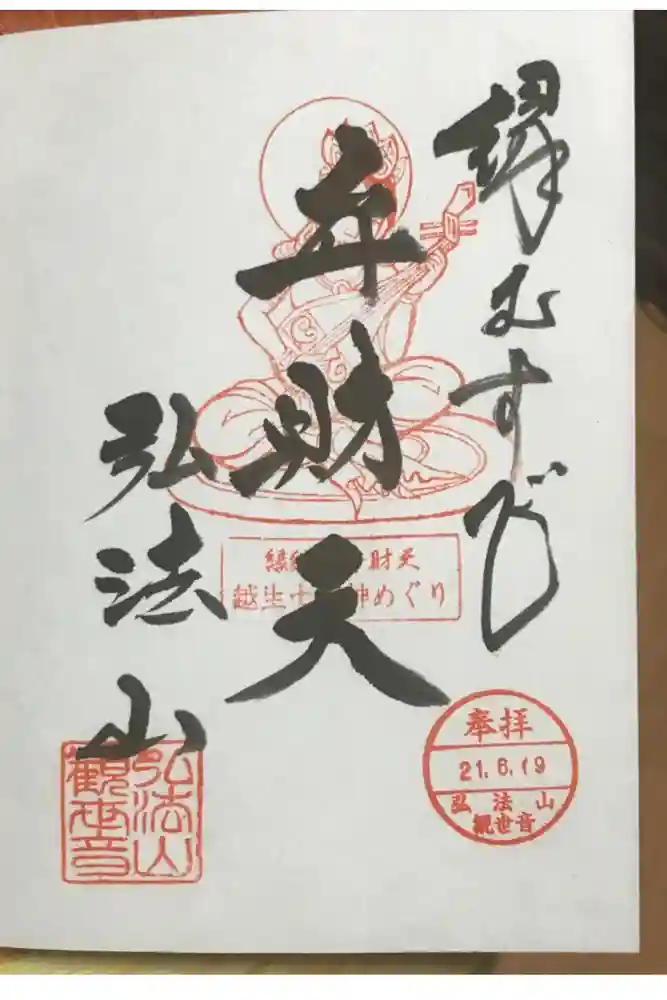 縁むすび
弁財天
弘法山
縁 財天
越生七 神めぐり
奉拝
21.6.19
弘法山
観世音
弘法山
観世音